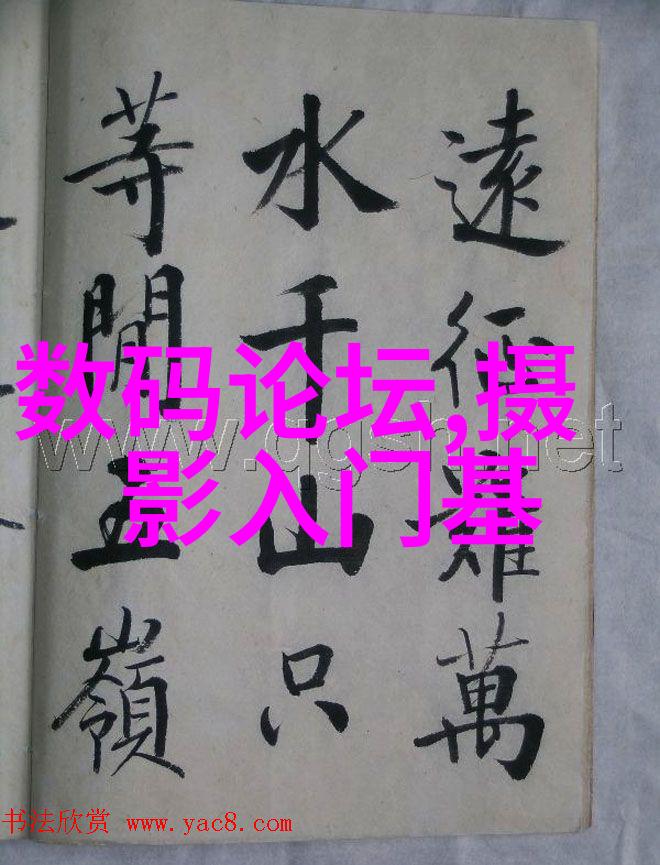 遠征難萬
水千山只
等閒五嶺
数码论坛,摄
影入门基
www.qgsh.net
书法欣赏 www.yac8.com